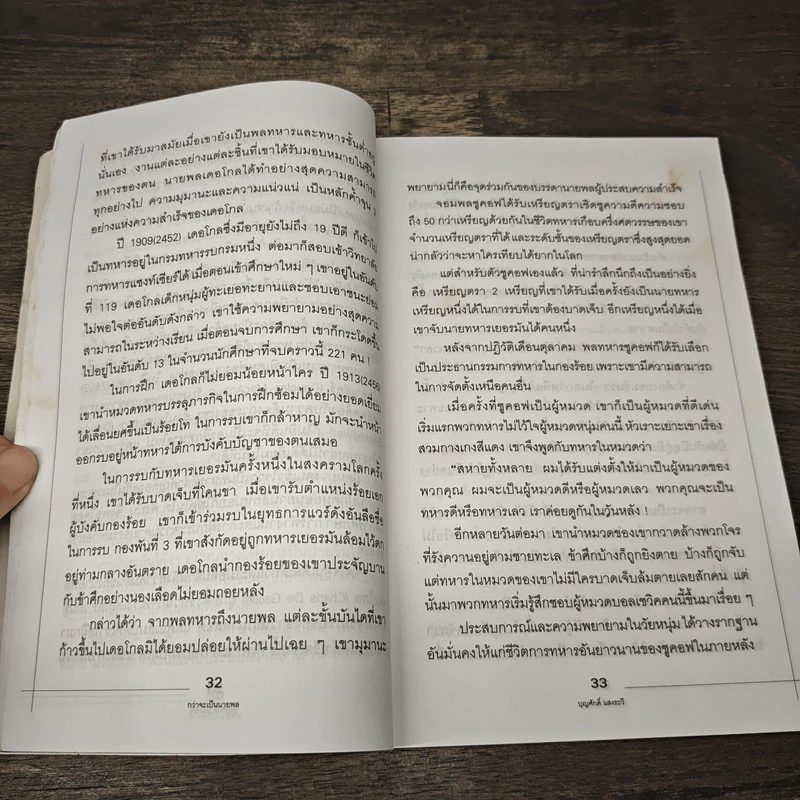 ที่เขาได้รับมาสมัยเมื่อเขายังเป็นพลทหารและทหารชั้นต่ำอยู่
นั่นเอง งานแต่ละอย่างแต่ละชิ้นที่เขาได้รับมอบหมายในชีวิต
ทหารของตน นายพลเดอโกลได้ทำอย่างสุดความสามารถ
ทุกอย่างไป ความมุมานะและความแน่วแน่ เป็นหลักค้ำจุน 2
อย่างแห่งความสำเร็จของเดอโกล
ปี 1909(2452) เดอโกลซึ่งมีอายุยังไม่ถึง 19 ปีดี ก็เข้าไป
เป็นทหารอยู่ในกรมทหารรบกรมหนึ่ง ต่อมาก็สอบเข้าวิทยาลัย
การทหารแซงท์เซียร์ได้ เมื่อตอนเข้าศึกษาใหม่ ๆ เขาอยู่ในอันดับ
ที่ 119 เดอโกลเด็กหนุ่มผู้ทะเยอทะยานและชอบเอาชนะย่อม
ไม่พอใจต่ออันดับดังกล่าว เขาใช้ความพยายามอย่างสุดความ
สามารถในระหว่างเรียน เมื่อตอนจบการศึกษา เขาก็กระโดดขึ้น
ไปอยู่ในอันดับ 13 ในจำนวนนักศึกษาที่จบคราวนี้ 221 คน !
ในการฝึก เดอโกลก็ไม่ยอมน้อยหน้าใคร ปี 1913(2456)
เขานำหมวดทหารบรรลุภารกิจในการฝึกซ้อมได้อย่างยอดเยี่ยม
ได้เลื่อนยศขึ้นเป็นร้อยโท ในการรบเขาก็กล้าหาญ มักจะนำหน้า
ออกรบอยู่หน้าทหารใต้การบังคับบัญชาของตนเสมอ
ในการรบกับทหารเยอรมันครั้งหนึ่งในสงครามโลกครั้ง
ที่หนึ่ง เขาได้รับบาดเจ็บที่โคนขา เมื่อเขารับตำแหน่งร้อยเอก
ผู้บังคับกองร้อย เขาก็เข้าร่วมรบในยุทธการแวร์ดังอันลือชื่อ
ในการรบ กองพันที่ 3 ที่เขาสังกัดอยู่ถูกทหารเยอรมันล้อมไว้ตก
อยู่ท่ามกลางอันตราย เดอโกลนำกองร้อยของเขาประจัญบาน
กับข้าศึกอย่างนองเลือดไม่ยอมถอยหลัง
กล่าวได้ว่า จากพลทหารถึงนายพล แต่ละขั้นบันไดที่เขา
ก้าวขึ้นไปเดอโกลมิได้ยอมปล่อยให้ผ่านไปเฉย ๆ เขามุมานะ
32
กว่าจะเป็นนายพล
พยายามนี่ก็คือจุดร่วมกันของบรรดานายพลผู้ประสบความสำเร็จ
จอมพลซูคอฟได้รับเหรียญตราเชิดชูความดีความชอบ
ถึง 50 กว่าเหรียญด้วยกันในชีวิตทหารเกือบครึ่งศตวรรษของเขา
จำนวนเหรียญตราที่ได้ และระดับชั้นของเหรียญตราซึ่งสูงสุดยอด
น่ากลัวว่าจะหาใครเทียบได้ยากในโลก
แต่สำหรับตัวซูคอฟเองแล้ว ที่น่ารำลึกนึกถึงเป็นอย่างยิ่ง
คือ เหรียญตรา 2 เหรียญที่เขาได้รับเมื่อครั้งยังเป็นนายทหาร
เหรียญหนึ่งได้ในการรบที่เขาต้องบาดเจ็บ อีกเหรียญหนึ่งได้เมื่อ
เขาจับนายทหารเยอรมันได้คนหนึ่ง
หลังจากปฏิวัติเดือนตุลาคม พลทหารซูคอฟก็ได้รับเลือก
เป็นประธานกรรมการทหารในกองร้อย เพราะเขามีความสามารถ
ในการจัดตั้งเหนือคนอื่น
เมื่อครั้งที่ซูคอฟเป็นผู้หมวด เขาก็เป็นผู้หมวดที่ดีเด่น
เริ่มแรกพวกทหารไม่ไว้ใจผู้หมวดหนุ่มคนนี้ หัวเราะเยาะเขาเรื่อง
สวมกางเกงสีแดง เขาจึงพูดกับทหารในหมวดว่า
"สหายทั้งหลาย ผมได้รับแต่งตั้งให้มาเป็นผู้หมวดของ
พวกคุณ ผมจะเป็นผู้หมวดดีหรือผู้หมวดเลว พวกคุณจะเป็น
ทหารดีหรือทหารเลว เราค่อยดูกันในวันหลัง !
อีกหลายวันต่อมา เขานำหมวดของเขากวาดล้างพวกโจร
ที่รังควานอยู่ตามชายทะเล ข้าศึกบ้างก็ถูกยิงตาย บ้างก็ถูกจับ
แต่ทหารในหมวดของเขาไม่มีใครบาดเจ็บล้มตายเลยสักคน แต่
นั้นมาพวกทหารเริ่มรู้สึกชอบผู้หมวดบอลเชวิคคนนี้ขึ้นมาเรื่อย ๆ
ประสบการณ์และความพยายามในวัยหนุ่ม ได้วางรากฐาน
อันมั่นคงให้แก่ชีวิตการทหารอันยาวนานของซูคอฟในภายหลัง
33
บุญศักดิ์ แสงระวี